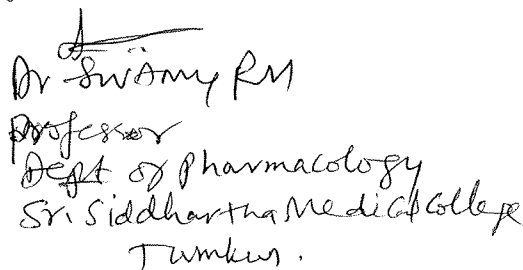 Dr Swamy RM
Professor
Dept of Pharmacology
Sri Siddhartha Medical College
Tumkur.